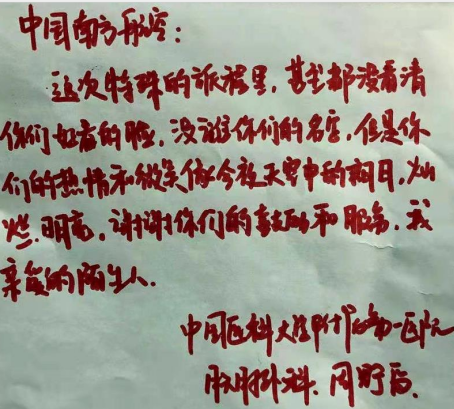 中国南方航空：
这次特殊的旅程里，甚至都没看清
你们姣好的脸，没记住你们的名字，但是你
们的热情和微笑像今夜天空中的明月，灿
烂，明亮，谢谢你们的鼓励和服务，我
亲爱的陌生人。
中国医科大学附属第一医院
胰腺外科